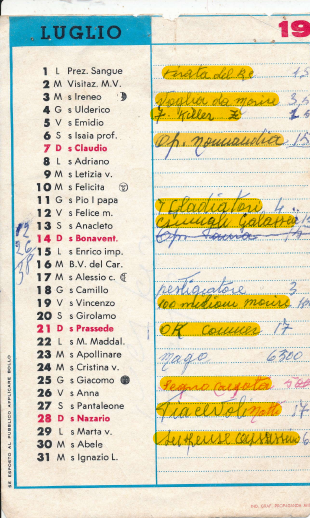 LUGLIO 19
1 L Prez. Sangue
2 M Visitaz. M.V.
3 M s Ireneo Voglia da morire 3,5
4 G s Ulderico 7. Killer Z
5 V s Emidio
6 S s Isaia prof. Op. Normandia 15
7 D s Claudio
8 L s Adriano
9 M s Letizia v.
10 M s Felicita
11 G s Pio I papa 7 Gladiatori 4
12 V s Felice m. Galassia
13 S s Anacleto Op.
14 D s Bonavent.
15 L s Enrico imp.
16 M B.V. del Car.
17 M s Alessio c.
18 G s Camillo Prestigiatore 3
19 V s Vincenzo 100 milioni morire
20 S s Girolamo
21 D s Prassede OK Connery 17
22 L s M. Maddal.
23 M s Apollinare Mago 6300
24 M s Cristina v.
25 G s Giacomo
26 V s Anna
27 S s Pantaleone Notte 17
28 D s Nazario
29 L s Marta v. Suspense 6
30 M s Abele
31 M s Ignazio L.
12
26
38
SE ESPOSTO AL PUBBLICO APPLICARE BOLLO